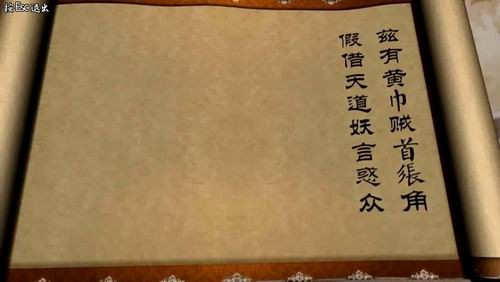 按Esc退出
兹有黄巾贼首張角
假借天道妖言惑众